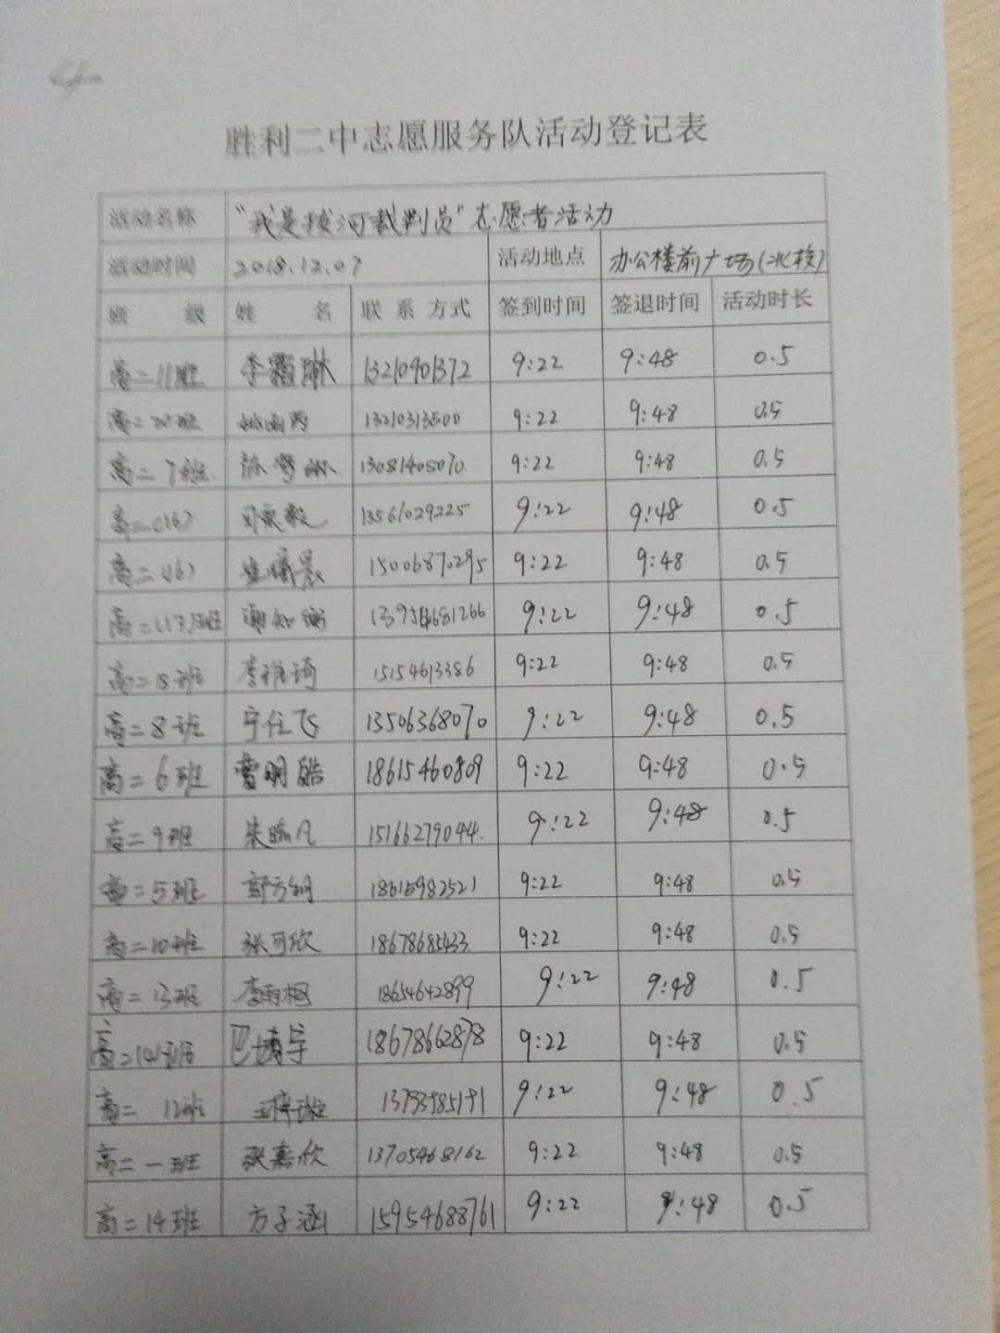 胜利二中志愿服务队活动登记表
活动名称 "我是拔河裁判员"志愿者活动
活动时间 2018.12.07 活动地点 办公楼前广场(北校)
班 级 姓 名 联系方式 签到时间 签退时间 活动时长
高二11班 李霜琳 13210901372 9:22 9:48 0.5
高二20班 13210313500 9:22 9:48 0.5
高二7班 13081405070 9:22 9:48 0.5
高二(16) 13561029225 9:22 9:48 0.5
高二(6) 15006870295 9:22 9:48 0.5
高二(17)班 谢知衡 13954681266 9:22 9:48 0.5
高二18班 李雅琦 15154613386 9:22 9:48 0.5
高二8班 宁任飞 13506368070 9:22 9:48 0.5
高二6班 曹明皓 18615460809 9:22 9:48 0.5
高二9班 朱晓凡 15166279044. 9:22 9:48 0.5
高二5班 18615982521 9:22 9:48 0.5
高二10班 张可欣 18678685433 9:22 9:48 0.5
高二13班 18654642899 9:22 9:48 0.5
高二14班 巴博宇 18678662878 9:22 9:48 0.5
高二 12班 王梓璇 13793985191 9:22 9:48 0.5
高二一班 张嘉欣 13705468162 9:22 9:48 0.5
高二14班 方子涵 15954688761 9:22 9:48 0.5